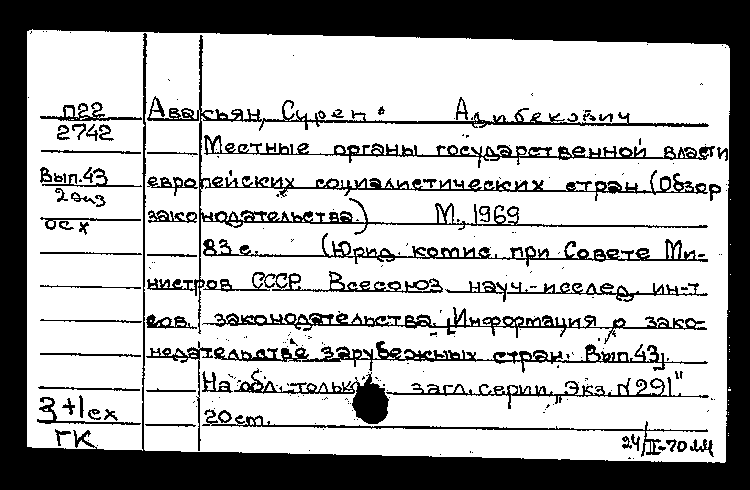 П22
2742
Авакьян, Сурен Адибекович
Местные органы государственной власти
Вып.43
европейских социалистических стран. (Обзор
2 экз
законодательства.) М., 1969
осх
83 с. (Юрид. комис. при Совете Ми-
нистров СССР. Всесоюз. науч.-исслед. ин-т
сов. законодательства. „Информация о зако-
нодательстве зарубежных стран. Вып.43).
На обл. только загл. серии. „Экз. N291."
3+1ех
20 см.
ГК
24/II-70